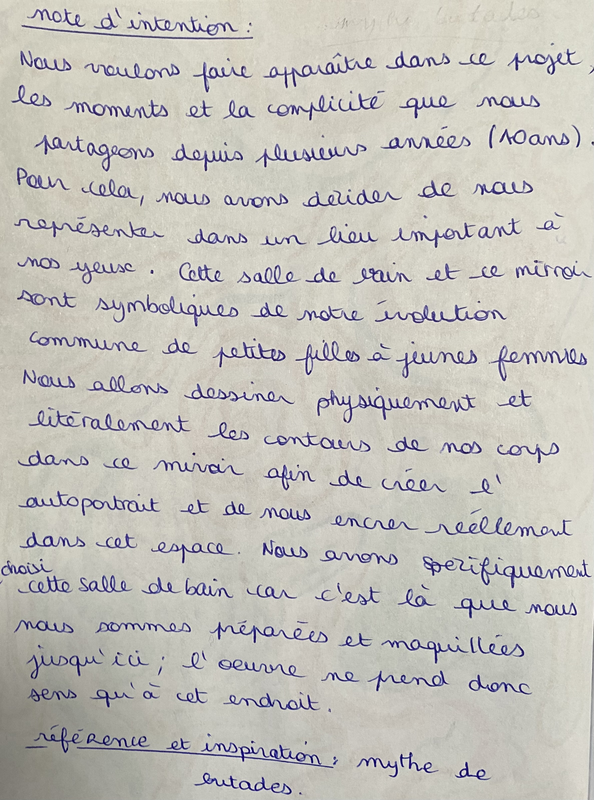 note d'intention :
Nous voulons faire apparaître dans ce projet,
les moments et la complicité que nous
partageons depuis plusieurs années (10ans).
Pour cela, nous avons décider de nous
représenter dans un lieu important à
nos yeux. Cette salle de bain et ce mirroir
sont symboliques de notre évolution
commune de petites filles à jeunes femmes
Nous allons dessiner physiquement et
litéralement les contours de nos corps
dans ce miroir afin de créer l'
autoportrait et de nous encrer reéllement
dans cet espace. Nous avons spécifiquement
choisi
cette salle de bain car c'est là que nous
nous sommes préparées et maquillées
jusqu'ici ; l'oeuvre ne prend donc
sens qu'à cet endroit.
référence et inspiration : mythe de
butades.